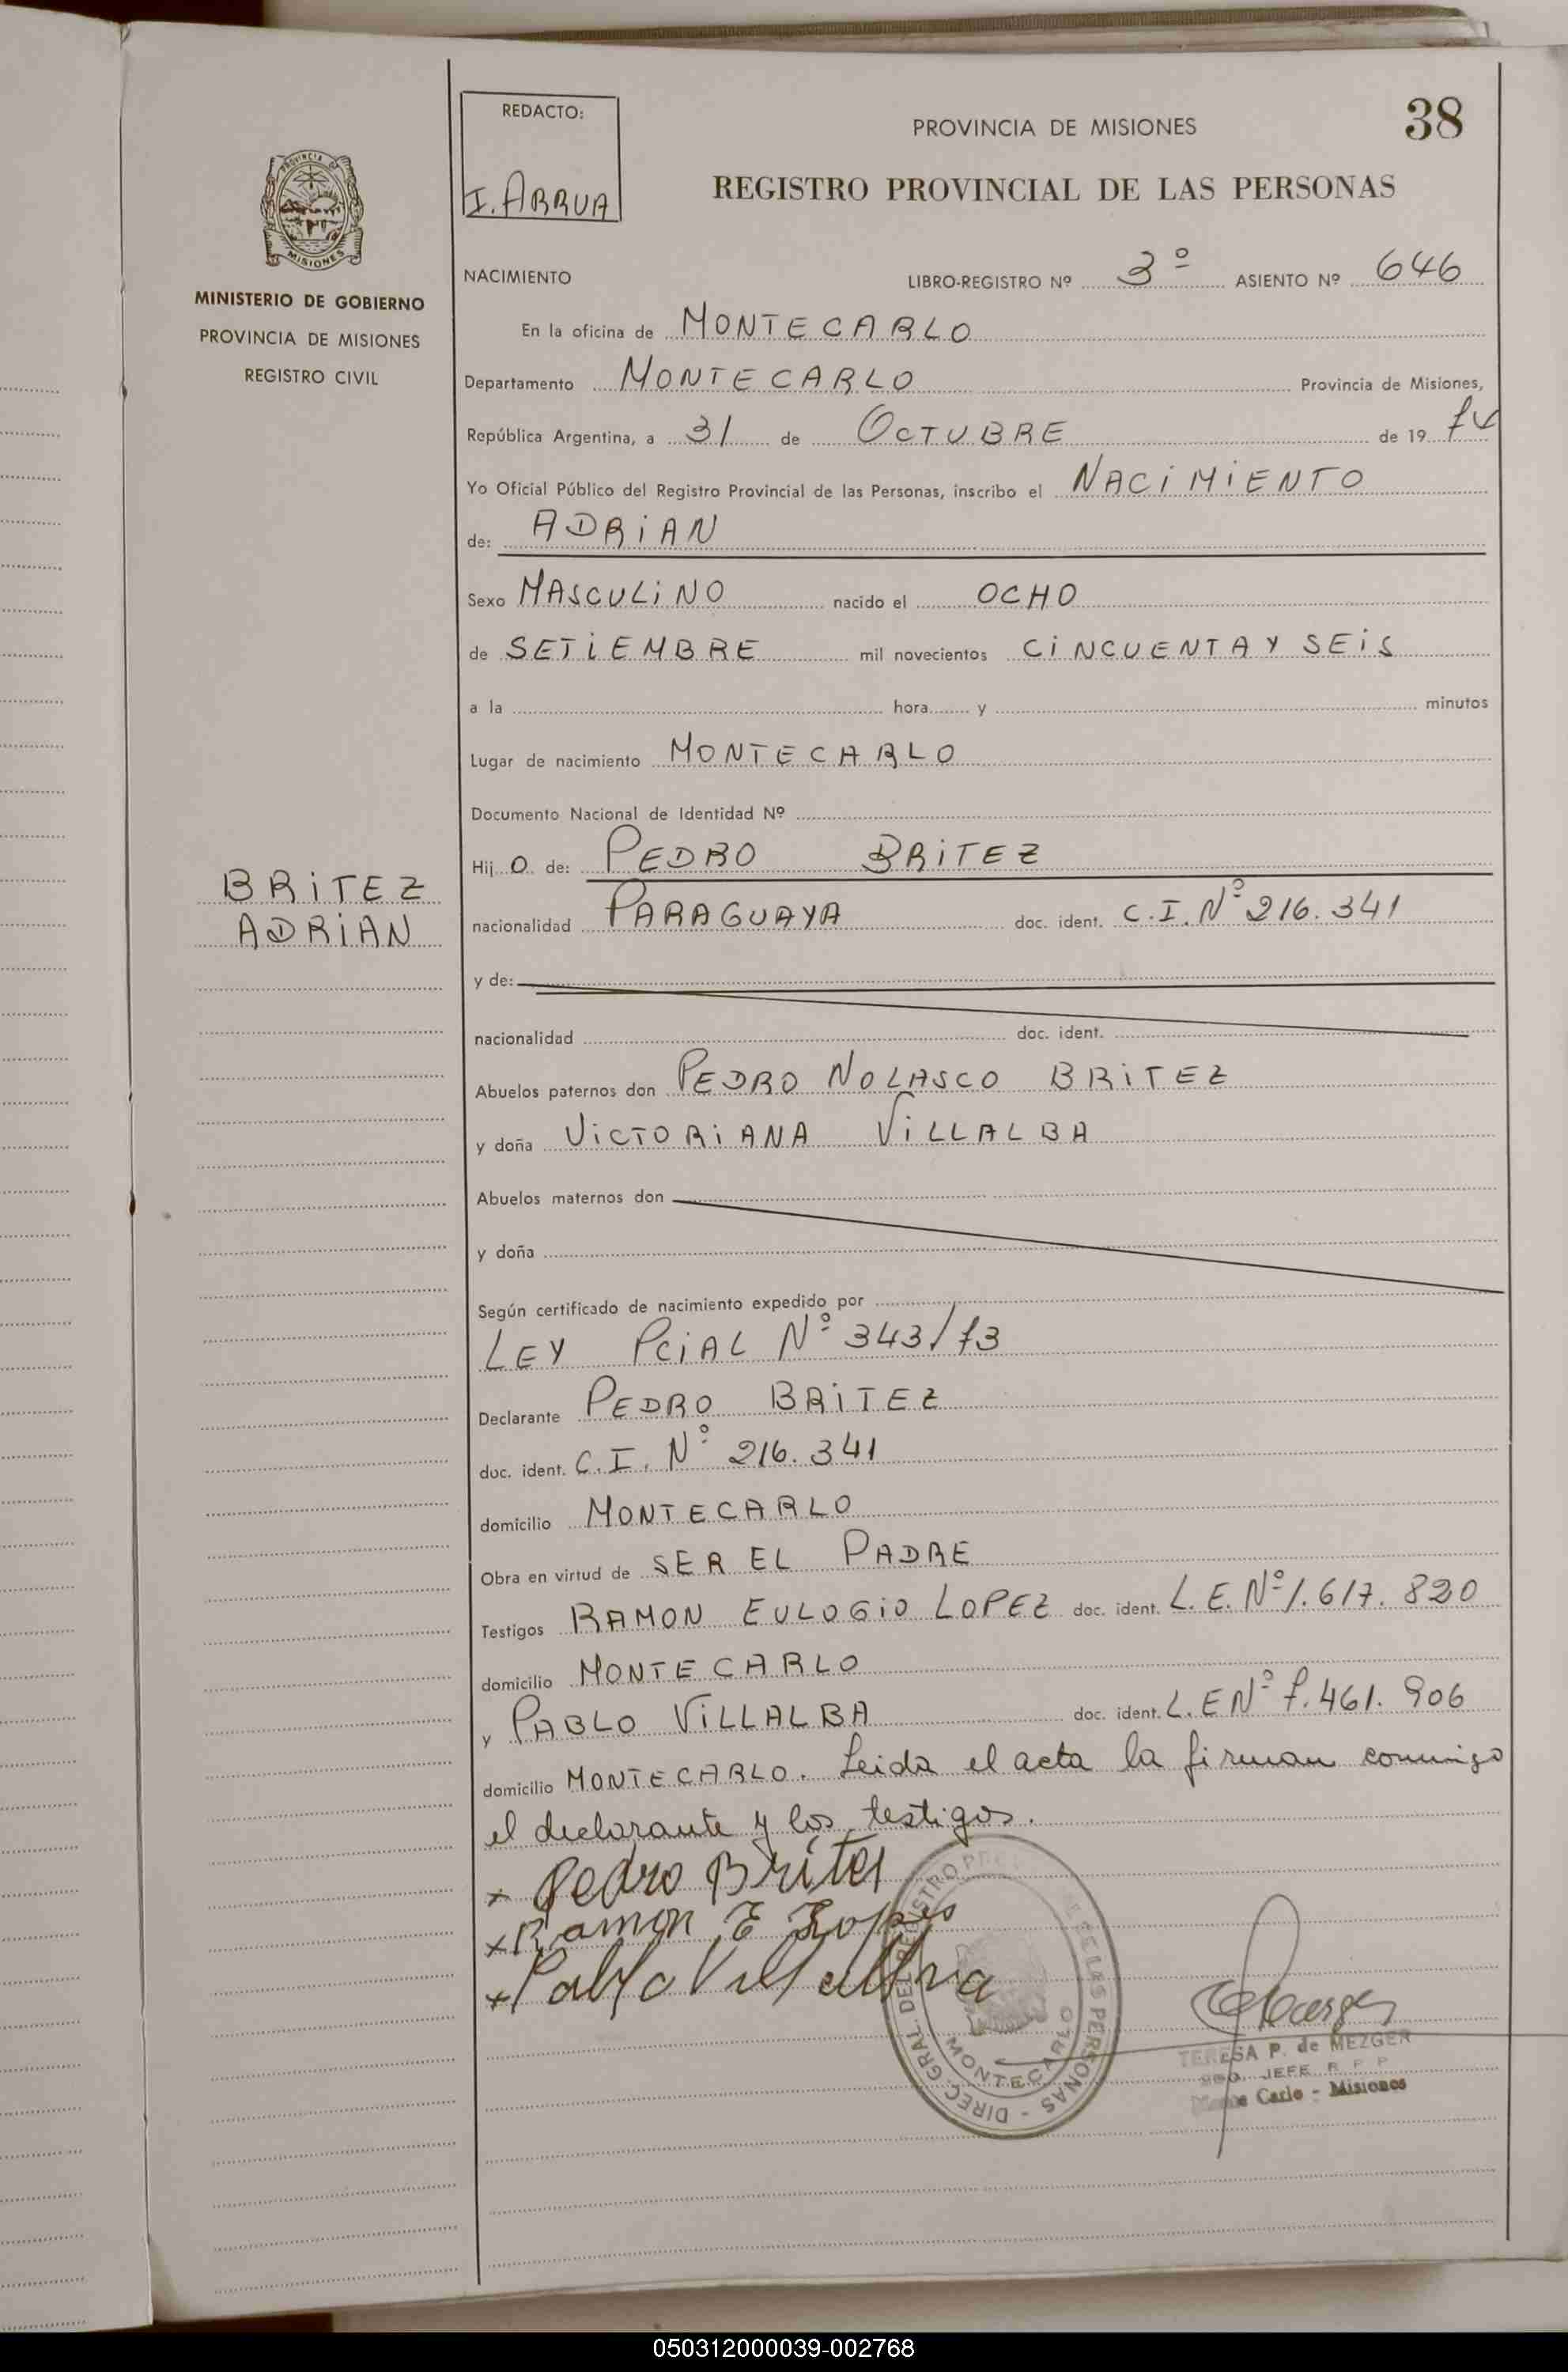 38
REDACTO:
I. ARRUA
PROVINCIA DE MISIONES
REGISTRO PROVINCIAL DE LAS PERSONAS
PROVINCIA DE MISIONES
MINISTERIO DE GOBIERNO
PROVINCIA DE MISIONES
REGISTRO CIVIL
NACIMIENTO LIBRO-REGISTRO Nº 3º ASIENTO Nº 646
En la oficina de MONTECARLO
Departamento MONTECARLO Provincia de Misiones,
República Argentina, a 31 de OCTUBRE de 19 74
Yo Oficial Público del Registro Provincial de las Personas, inscribo el NACIMIENTO
de: ADRIAN
Sexo MASCULINO nacido el OCHO
de SETIEMBRE mil novecientos CINCUENTA Y SEIS
a la hora y minutos
Lugar de nacimiento MONTECARLO
Documento Nacional de Identidad Nº
BRITEZ
ADRIAN
Hij O de: PEDRO BRITEZ
nacionalidad PARAGUAYA doc. ident. C.I. Nº 216.341
y de:
nacionalidad doc. ident.
Abuelos paternos don PEDRO NOLASCO BRITEZ
y doña VICTORIANA VILLALBA
Abuelos maternos don
y doña
Según certificado de nacimiento expedido por
LEY PCIAL Nº 343/73
Declarante PEDRO BRITEZ
doc. ident. C.I. Nº 216.341
domicilio MONTECARLO
Obra en virtud de SER EL PADRE
Testigos RAMON EULOGIO LOPEZ doc. ident. L.E. Nº 1.617.820
domicilio MONTECARLO
y PABLO VILLALBA doc. ident. L.E Nº 7.461.906
domicilio MONTECARLO. Leida el acta la firman conmigo
el declarante y los testigos.
x Pedro Britez
x Ramon E Lopez
x Pablo Villalba
DIREC. GRAL. DEL REGISTRO DE LAS PERSONAS
MONTECARLO
TERESA P. de MEZGER
JEFE R P P
Monte Carlo - Misiones
050312000039-002768